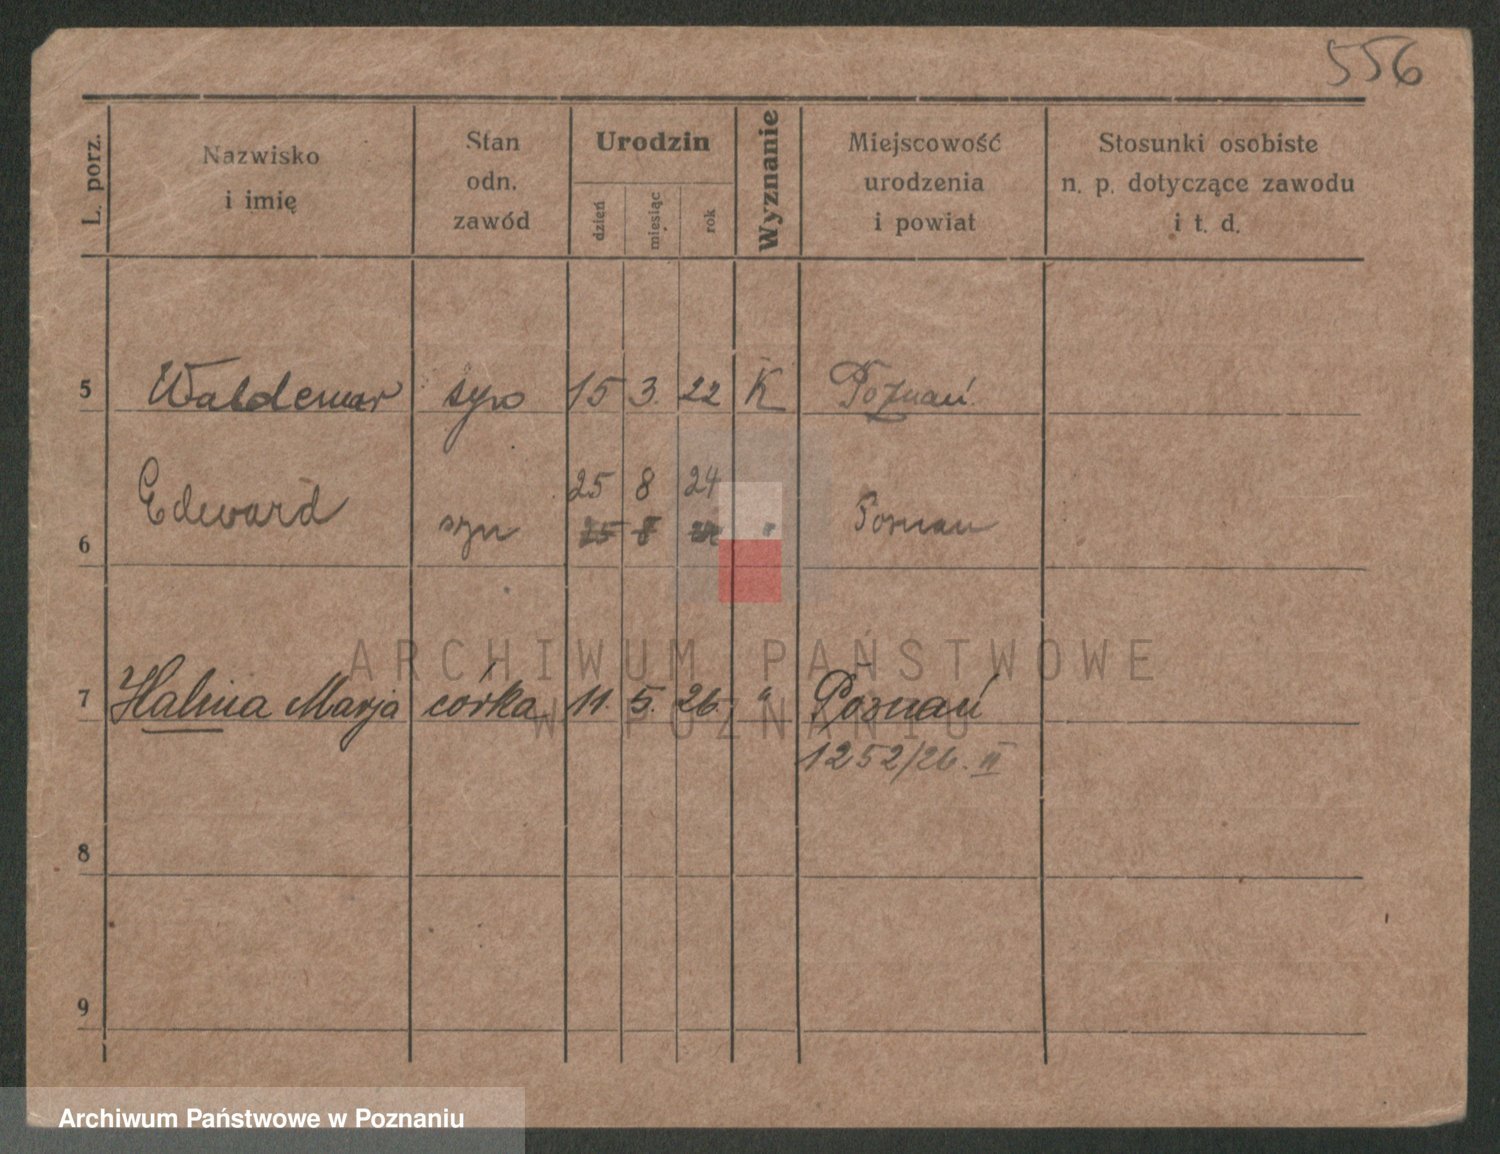 556
L. porz.
Nazwisko
i imię
Stan
odn.
zawód
Urodzin
dzień
miesiąc
rok
Wyznanie
Miejscowość
urodzenia
i powiat
Stosunki osobiste
n. p. dotyczące zawodu
i t. d.
5 Waldemar syn 15 3. 22 K Poznań
25 8 24
6 Edward syn 25 8 24 " Poznan
ARCHIWUM PAŃSTWOWE
7 Halina Marja córka 11. 5. 26. " Poznań
W POZNANIU
1252/26. II
8
9
Archiwum Państwowe w Poznaniu